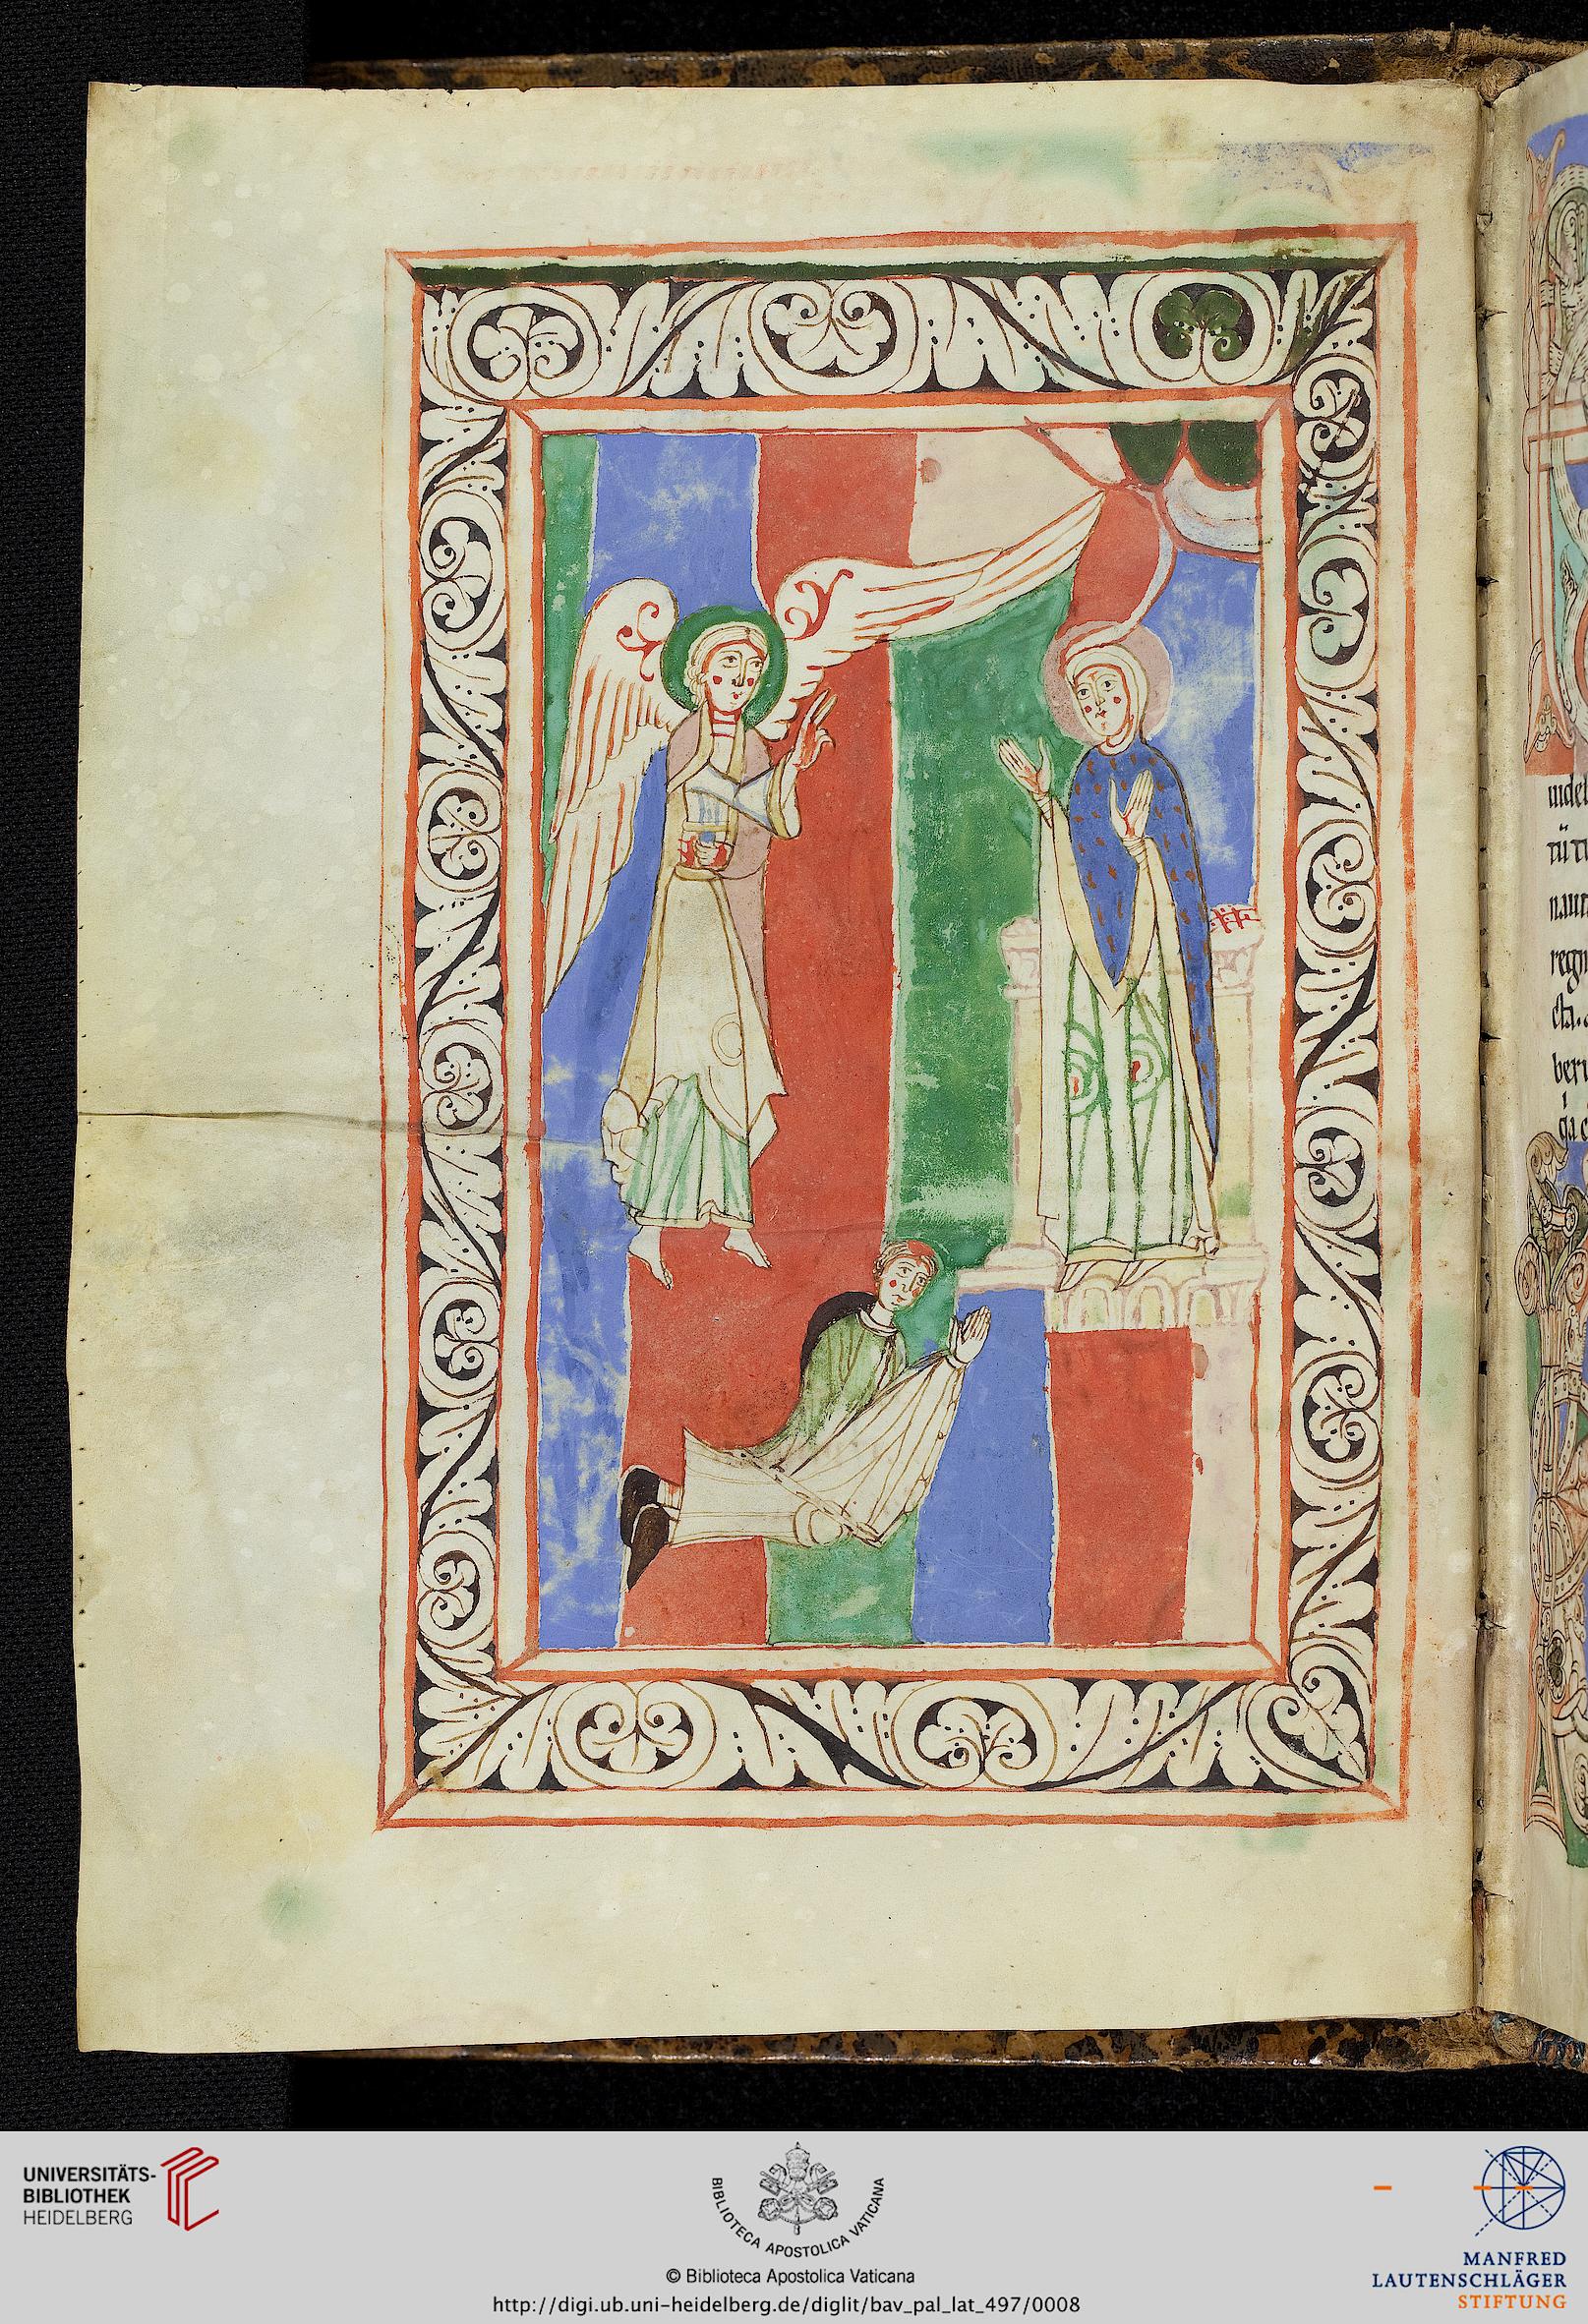 uidel
tū tu
naue
regn
cta.
beri
ga c
UNIVERSITÄTS-
BIBLIOTHEK
HEIDELBERG
BIBLIOTECA APOSTOLICA VATICANA
© Biblioteca Apostolica Vaticana
http://digi.ub.uni-heidelberg.de/diglit/bav_pal_lat_497/0008
MANFRED
LAUTENSCHLÄGER
STIFTUNG